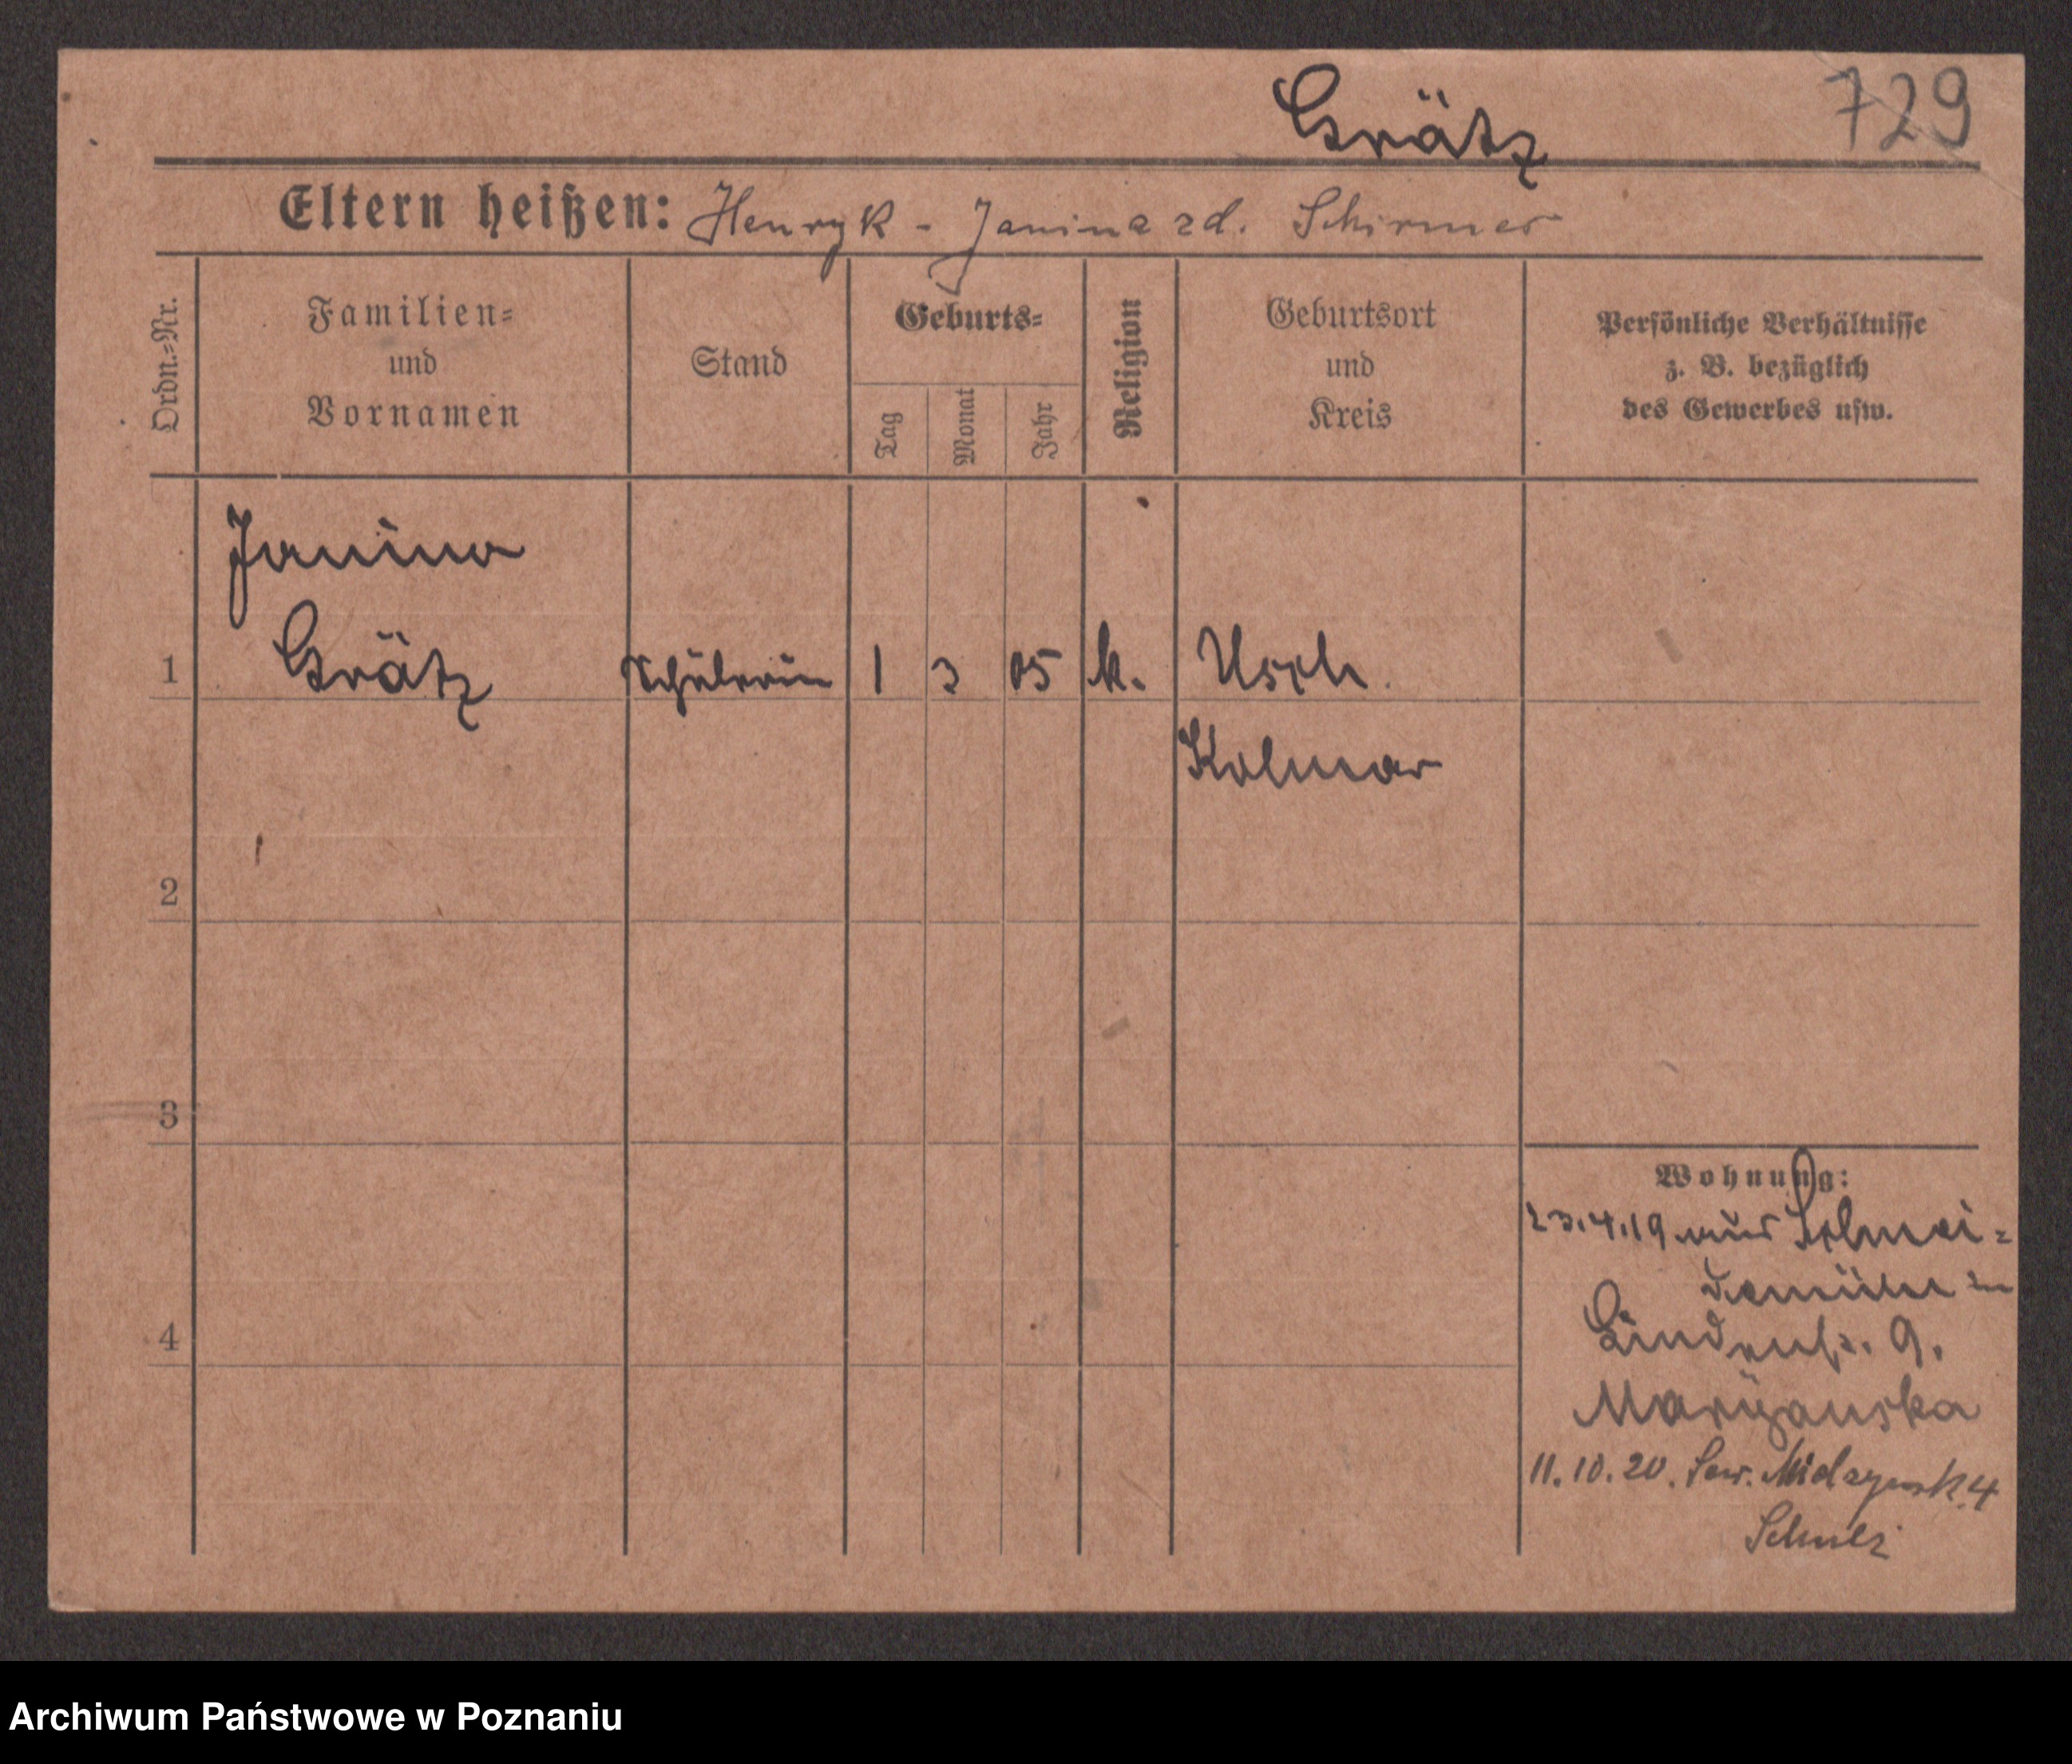 Grätz
729
Eltern heißen: Henryk - Janina zd. Schirmer
Ordn.=Nr.
Familien=
und
Vornamen
Stand
Geburts=
Tag
Monat
Jahr
Religion
Geburtsort
und
Kreis
Persönliche Verhältnisse
z. B. bezüglich
des Gewerbes usw.
Janina
1 Grätz Schülerin 1 3 05 k. Usch.
Kolmar
2
3
4
Wohnung:
23.4.19 aus Schnei=
demühl
Lindenstr. 9.
11.10.20. Sew. 4
Schulz
Archiwum Państwowe w Poznaniu